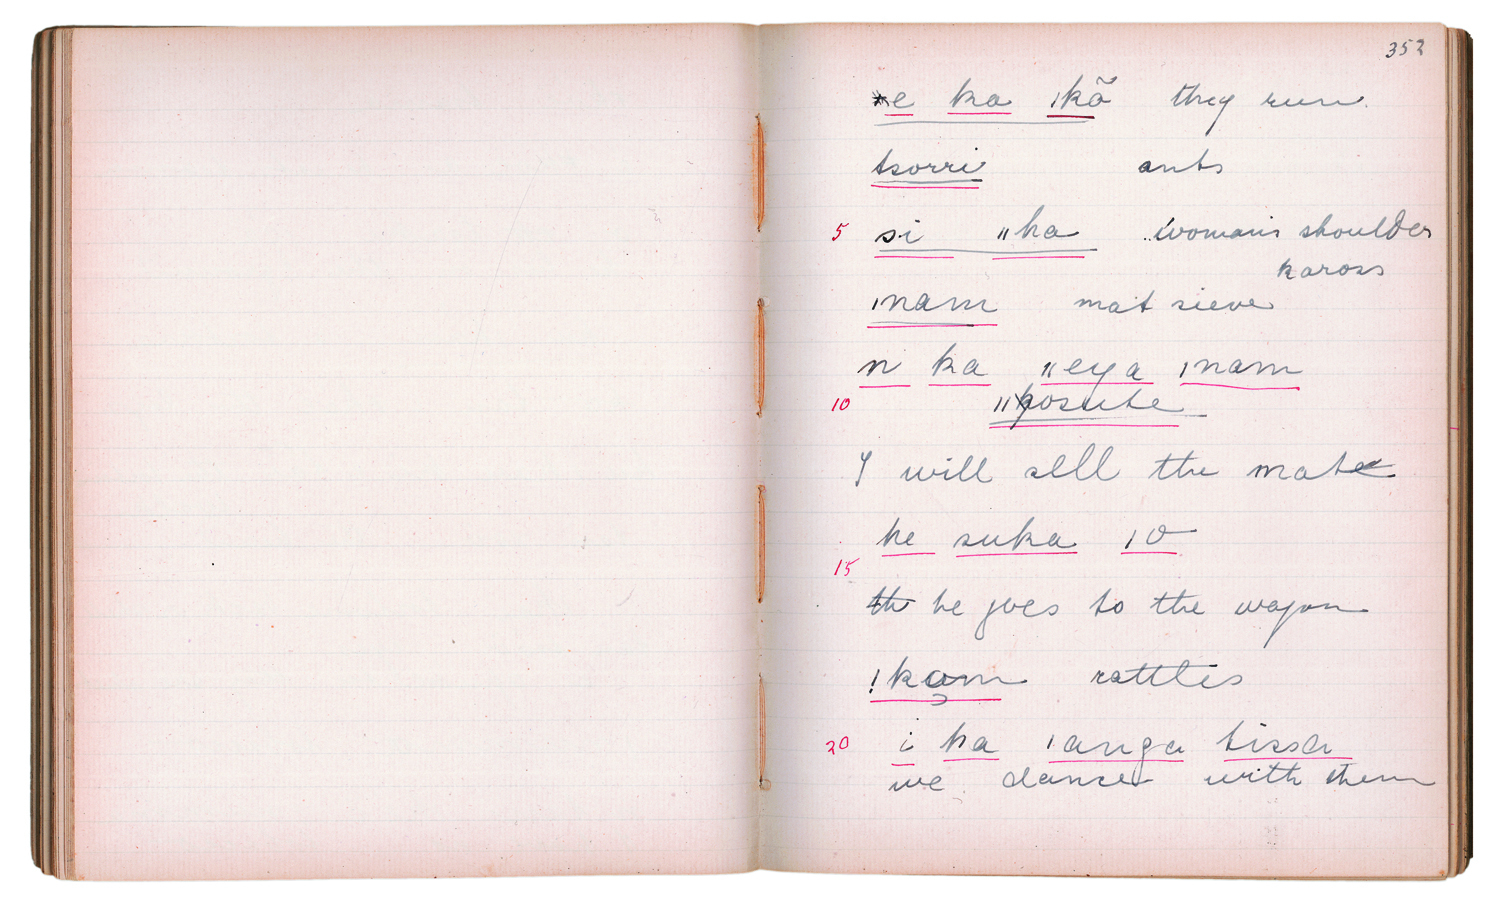 352
ǂe ka ǀkã they run
tsorri ants
5 si ǁka woman's shoulder
kaross
ǀnam mat sieve
n ka ǁeya ǀnam
10 ǁkosute
I will sell the mat
he suka ǀo
15
th he goes to the wagon
!kọm rattles
20 i ka ǀanga tissa
we dance with them